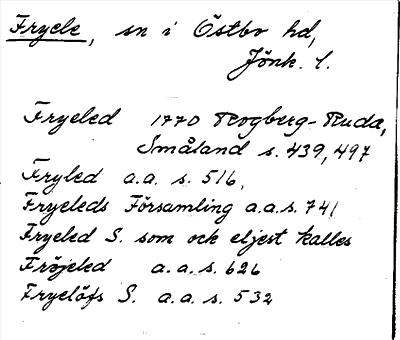 Fryele, sn i Östbo hd,
Jönk. l.
Fryeled 1770 Rogberg-Ruda,
Småland s. 439, 497
Fryled a.a. s. 516,
Fryeleds Församling a.a.s. 741
Fryeled S. som och eljest kalles
Fröjeled a.a. s. 626
Fryelöfs S. a.a. s. 532